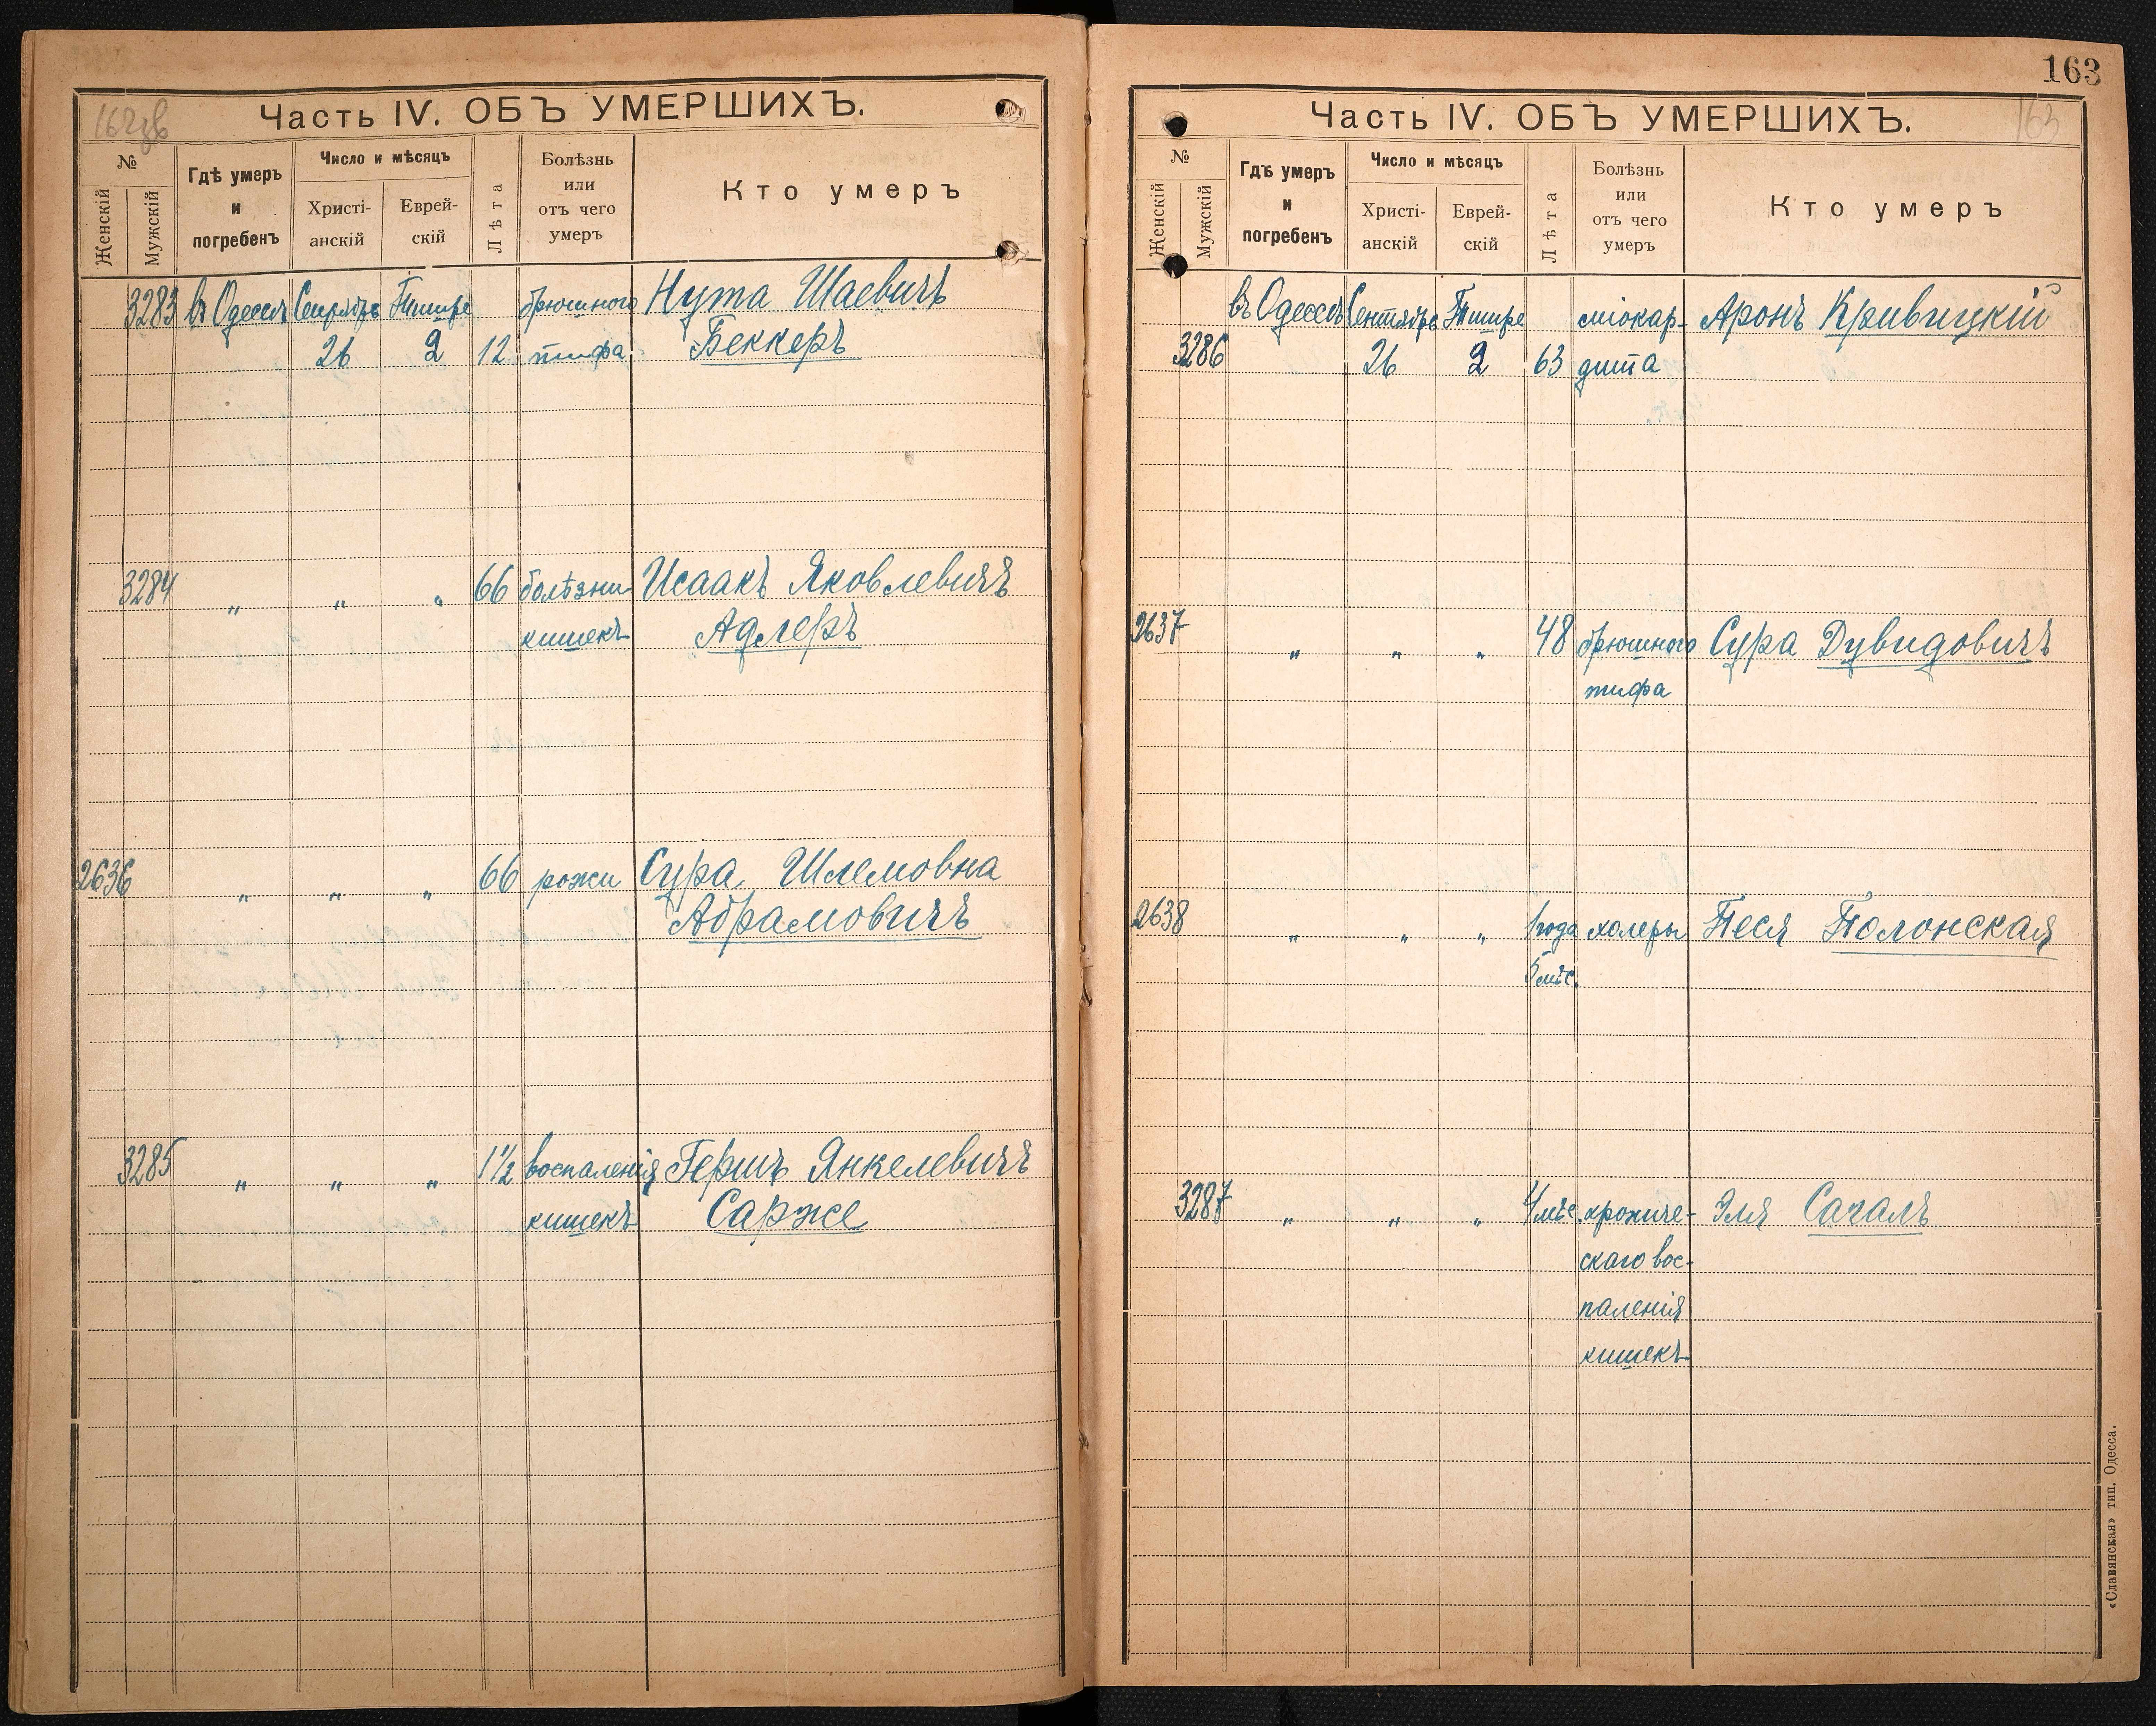 Часть IV. ОБЪ УМЕРШИХЪ.
№
Женскій
Мужскій
Гдѣ умеръ
и
погребенъ
Число и мѣсяцъ
Христі-
анскій
Еврей-
скій
Лѣта
Болѣзнь
или
отъ чего
умеръ
Кто умеръ
3283 въ Одессѣ Сентябрь Тишре брюшного Нута Шаевичъ
26 2 12 тифа Беккеръ
3284 „ „ „ 66 болѣзни Исаакъ Яковлевичъ
кишекъ Адлеръ
2636 „ „ „ 66 рожи Сура Шлемовна
Абрамовичъ
3285 „ „ „ 1½ воспаленія Гершъ Янкелевичъ
кишекъ Сарже
163
Часть IV. ОБЪ УМЕРШИХЪ.
163
№
Женскій
Мужскій
Гдѣ умеръ
и
погребенъ
Число и мѣсяцъ
Христі-
анскій
Еврей-
скій
Лѣта
Болѣзнь
или
отъ чего
умеръ
Кто умеръ
въ Одессѣ Сентябрь Тишре міокар- Аронъ Кривицкій
3286 26 2 63 дита
2637 „ „ „ 48 брюшного Сура Дувидовичъ
тифа
2638 „ „ „ 1 года холеры Песя Полонская
5 мѣс.
3287 „ „ „ 4 мѣс. хрониче- Эля Сагалъ
скаго вос-
паленія
кишекъ
«Славянская» тип. Одесса.